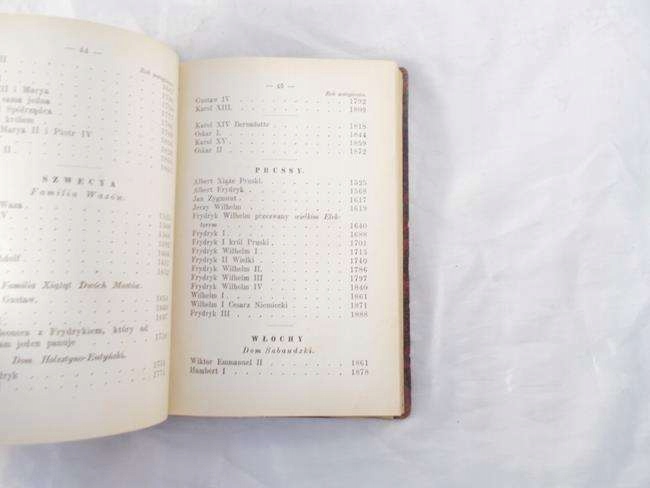 — 44 —
II
II i Marya
sama jedna
Spółrządca
królem
Marya II i Piotr IV
II
SZWECYA
Familia Wazów.
Waza
V.
dolf
Familia Xiążąt Dwóch Mostów.
Gustaw
leonora z Frydrykiem, który od
am jeden panuje
Dom Holsztyno-Eutyński.
dryk
— 45 —
Rok wstąpienia.
Gustaw IV 1792
Karol XIII. 1809
Karol XIV Bernadotte 1818
Oskar I. 1844
Karol XV 1859
Oskar II 1872
PRUSSY.
Albert Xiąże Pruski. 1525
Albert Frydryk 1568
Jan Zygmunt 1617
Jerzy Wilhelm 1619
Frydryk Wilhelm przezwany wielkim Elek-
torem 1640
Frydryk I 1688
Frydryk I król Pruski 1701
Frydryk Wilhelm I 1715
Frydryk II Wielki 1740
Frydryk Wilhelm II. 1786
Frydryk Wilhelm III 1797
Frydryk Wilhelm IV 1840
Wilhelm I 1861
Wilhelm I Cesarz Niemiecki 1871
Frydryk III 1888
WŁOCHY
Dom Sabaudzki.
Wiktor Emmanuel II 1861
Humbert I 1878